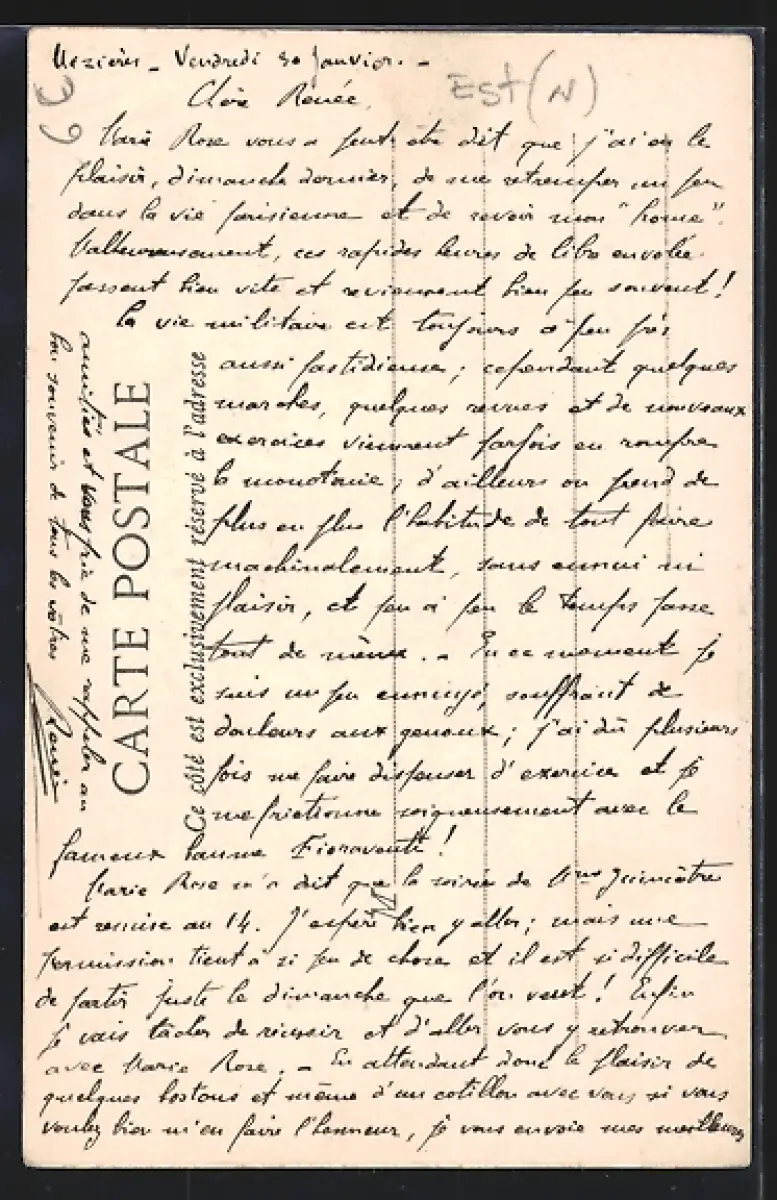 Mézières - Vendredi 30 Janvier. -
EST (N)
Chère Renée,
Marie Rose vous a peut être dit que j'ai eu le
plaisir, dimanche dernier, de me retremper un peu
dans la vie parisienne et de revoir mon "home".
Malheureusement, ces rapides heures de envolée
passent bien vite et reviennent bien peu souvent !
La vie militaire est toujours à peu près
aussi fastidieuse ; cependant quelques
marches, quelques revues et de nouveaux
exercices viennent parfois en rompre
la monotonie ; d'ailleurs on prend de
plus en plus l'habitude de tout faire
machinalement, sans ennui ni
plaisir, et peu à peu le temps passe
tout de même. - En ce moment je
suis un peu ennuyé, souffrant de
douleurs aux genoux ; j'ai dû plusieurs
fois me faire dispenser d'exercice et je
me frictionne soigneusement avec le
fameux baume Fioraventi !
Marie Rose m'a dit que la soirée de Mme
est remise au 14. J'espère bien y aller ; mais une
permission tient à si peu de chose et il est si difficile
de partir juste le dimanche que l'on veut ! Enfin
je vais tâcher de réussir et d'aller vous y retrouver
avec Marie Rose. - En attendant donc le plaisir de
quelques bostons et même d'un cotillon avec vous si vous
voulez bien m'en faire l'honneur, je vous envoie mes meilleures
amitiés et vous prie de me rappeler au
bon souvenir de tous les vôtres
René
CARTE POSTALE
Ce côté est exclusivement réservé à l'adresse